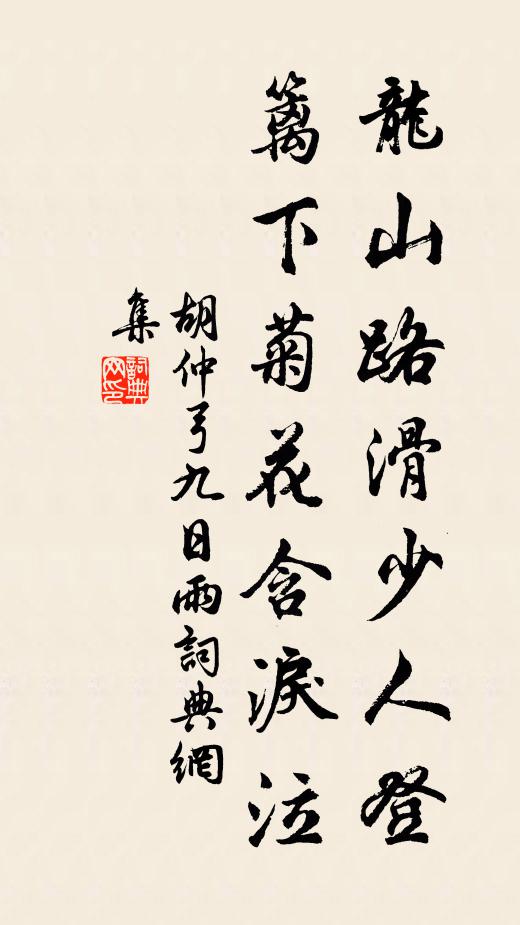 龍山路滑少人登
籬下菊花含淚泣
胡仲弓九日雨詞典網
集
詞典
网印